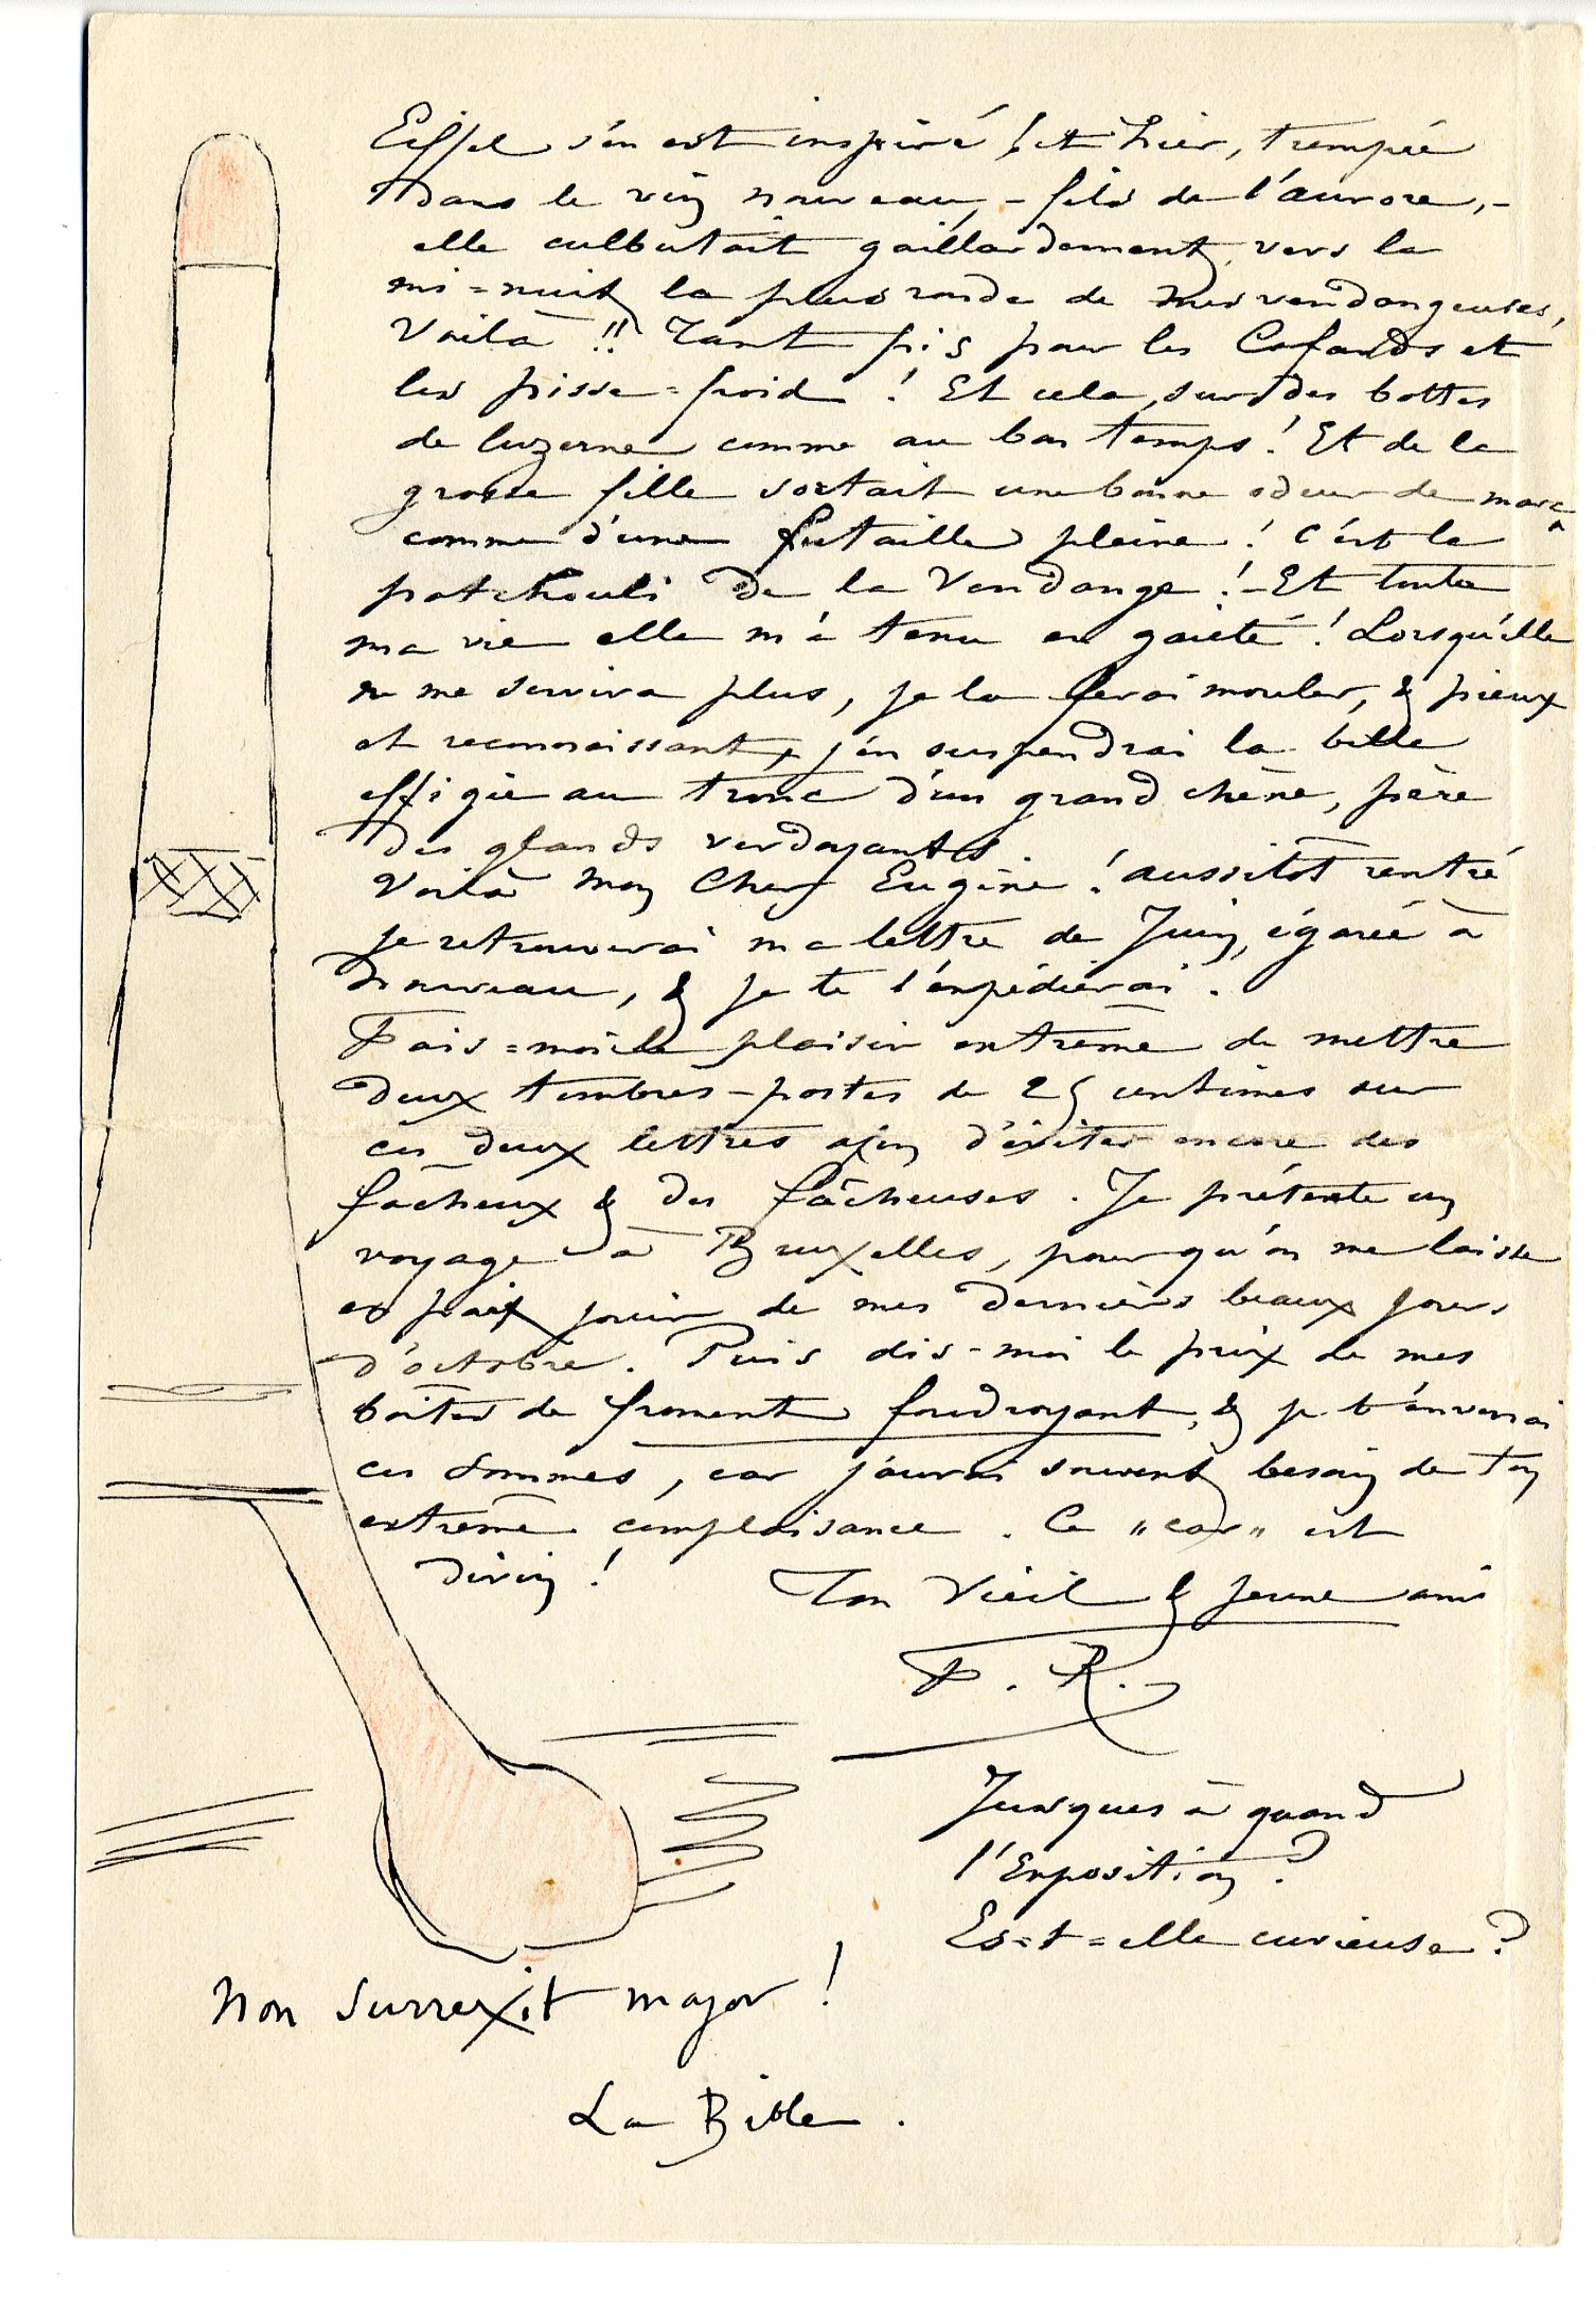 Eiffel s'en est inspiré ! et hier, trempée
dans le vin nouveau, – fils de l'aurore, –
elle culbutait gaillardement, vers la
mi=nuit la plus ronde de mes vendangeuses,
Voilà !! Tant pis pour les Cafards et
les pisse=froid ! Et cela, sur des bottes
de luzerne comme au bon temps ! Et de la
grosse fille sortait une bonne odeur de marc
comme d'une futaille pleine ! C'est le
patchouli de la Vendange ! – Et toute
ma vie elle m'a tenu en gaieté ! Lorsqu'elle
ne me servira plus, je la ferai mouler, & pieux
et reconnaissant, j'en suspendrai la belle
effigie au tronc d'un grand chêne, père
des glands verdoyants.
Voilà mon Cher Eugène ! aussitôt rentré
je retrouverai ma lettre de Juin, égarée à
nouveau, & je te l'expédierai.
Fais=moi le plaisir extrême de mettre
deux timbres-postes de 25 centimes sur
ces deux lettres afin d'éviter encore des
facheux & des fâcheuses. Je prétexte un
voyage à Bruxelles, pour qu'on me laisse
en paix jouir de mes derniers beaux jours
d'octobre. Puis dis-moi le prix de mes
boites de froment foudroyant, & je t'enverrai
ces sommes, car j'aurai souvent besoin de ton
extrême complaisance. Ce „car" est
divin !
Ton Vieil & jeune ami
F. R.
Jusques à quand
l'Exposition ?
Es=t=elle curieuse ?
Non surrexit major !
La Bible.